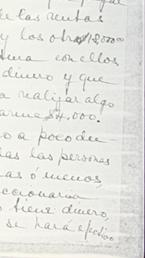 de las rentas
y los otros 12.000.00
con ellos
dinero y que
realizar algo
$4.000.
o a poco de
las personas
as ó menos,
accionaria
tiene dinero,
se hará efectivo